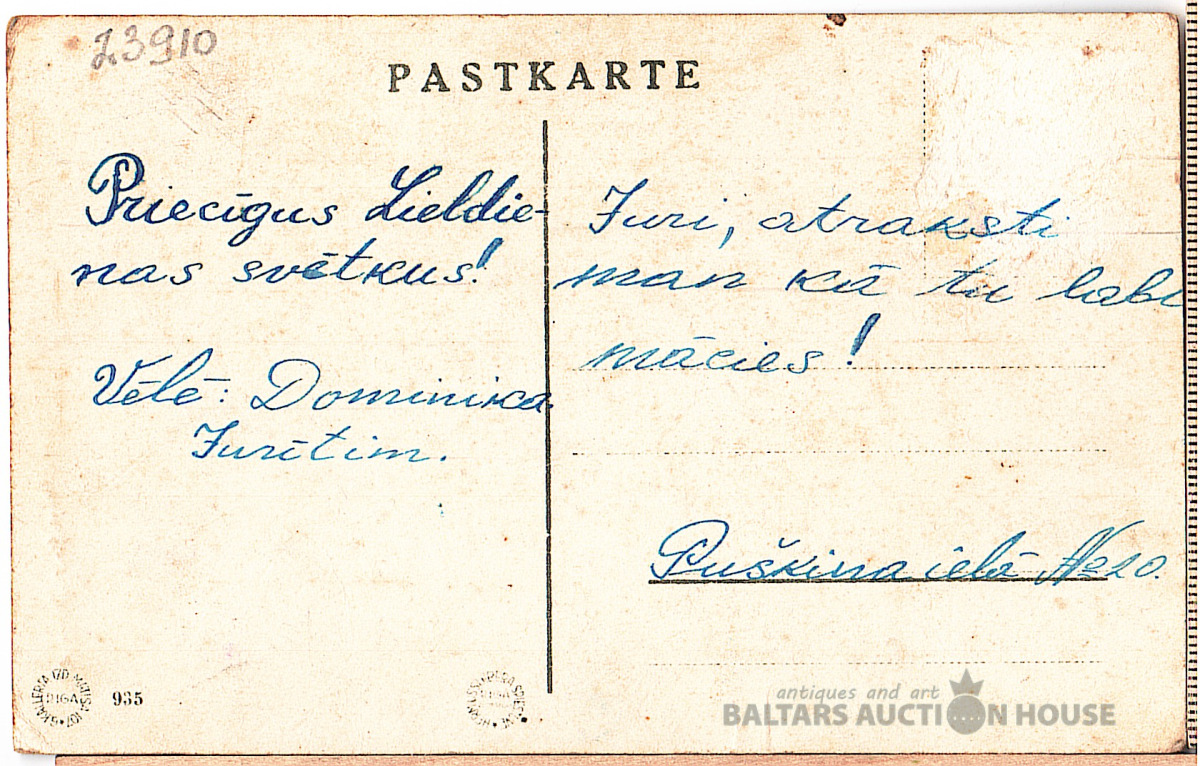 23910
PASTKARTE
Priecīgus Lieldie-
nas svētkus!
Vēlē: Dominika
Jurītim.
Juri, atraksti
man kā tu labi
mācies!
Puškina ielā № 20.
RIGA
935
antiques and art
BALTARS AUCTION HOUSE